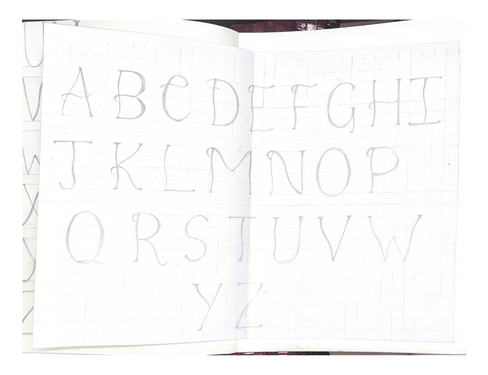 ABCDEFGHI
JKLMNOP
QRSTUVW
YZ